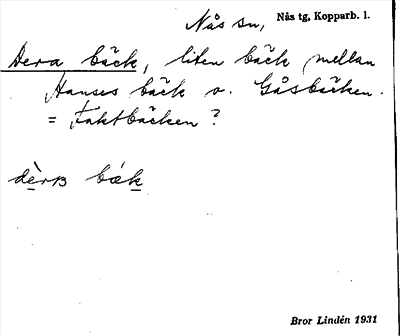 Nås sn, Nås tg, Kopparb. l.
Dera bäck, liten bäck mellan
Hanses bäck o. Gåsbäcken.
= Faktbäcken?
dèrɞ bǽk
Bror Lindén 1931